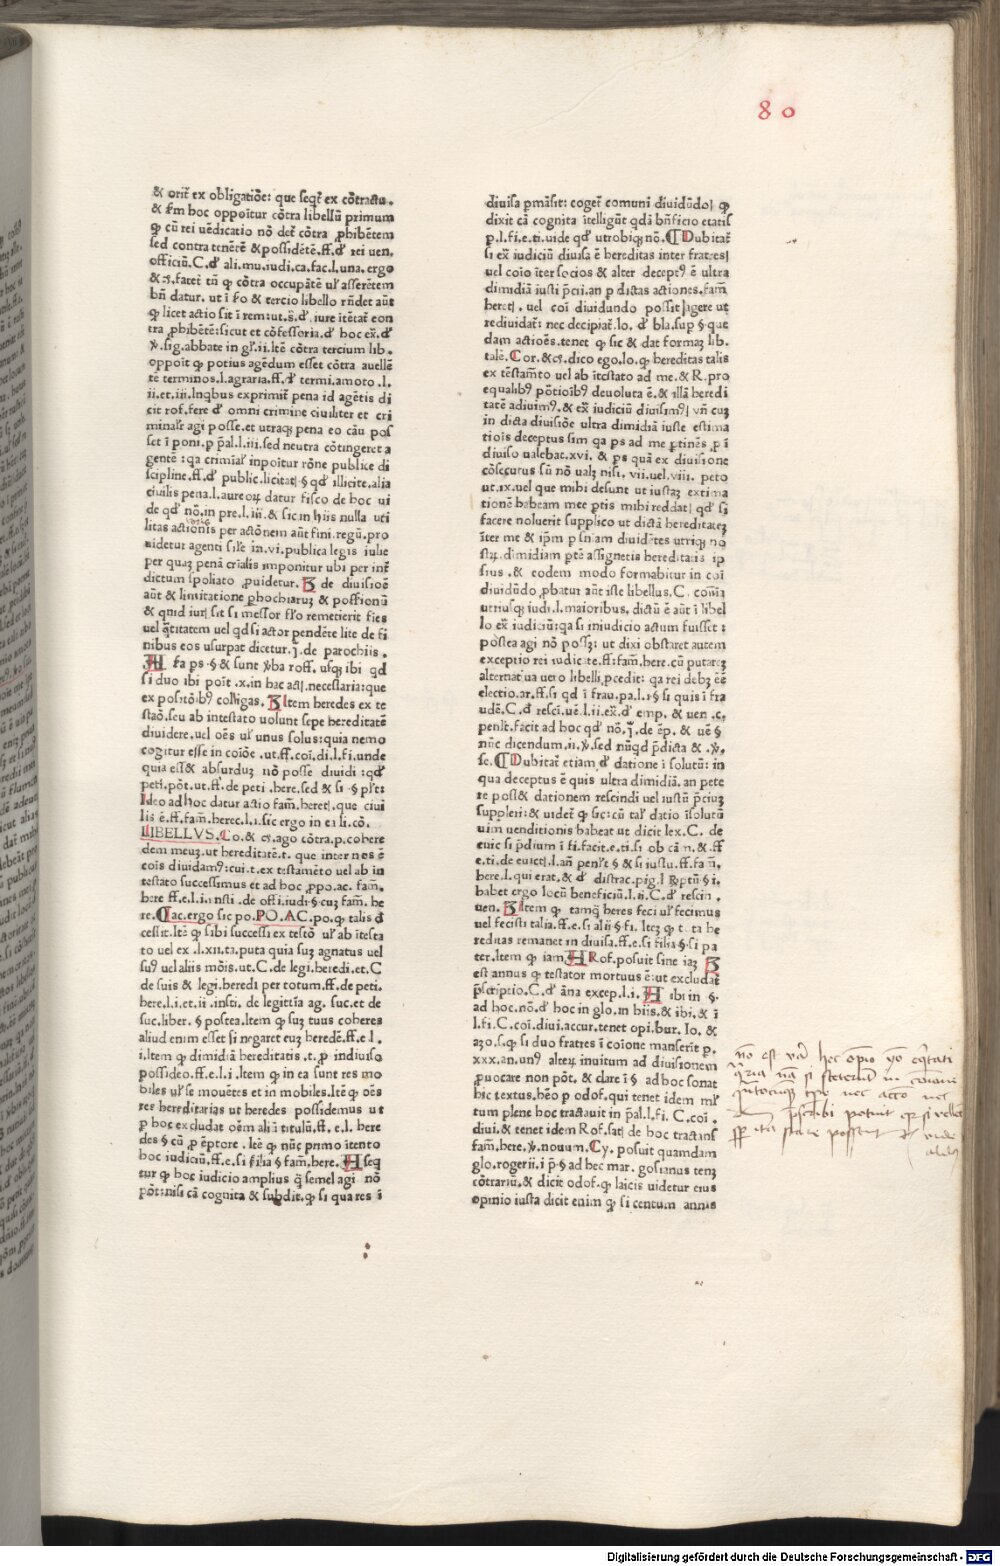 80
& orit̃ ex obligatiõe: que seqt̃ ex cõtractu.
& ẜm hoc oppoĩtur cõtra libellũ primum
ꝙ cũ rei uẽdicatio nõ det̃ cõtra ꝓhibẽtem
sed contra tenẽtẽ & possidẽtẽ.ff.đ rei uen.
officiũ.C.đ ali.mu.iudi.ca.fac.l.una.ergo
& cꝫ.fatet̃ tñ ꝙ cõtra occupãtẽ ul̃ asserẽtem
bñ datur. ut ĩ ẜo & tercio libello rñdet aũt
ꝙ licet actio sit ĩ rem: ut.s̃.đ.iure itẽtat̃ con
tra ꝓhibẽtẽ: sicut et cõfessoria.đ hoc ex̃.đ
ꝟ.sig.abbate in gl̃.ii.Itẽ cõtra tercium lib.
oppoĩt ꝙ potius agẽdum esset cõtra auellẽ
tẽ terminos.l.agraria.ff.đ termi.amoto.l.
ii.et.iii.Inqbus exprimit̃ pena id agẽtis di
cit rof.fere đ omni crimine ciuiliter et cri
minal̃r agi posse.et utraqꝫ pena eo cãu pos
set ĩ poni.ꝑ p̃al.l.iii.sed neutra cõtingeret a
gentẽ: qa crimĩal̃ inpoĩtur rõne publice di
scipline.ff.đ public.licitat̃ § qđ illicite.alia
ciuilis pena.l.aureoꝝ datur fisco de hoc ui
de qđ nõ.in pre.l.iii.& sic in hiis nulla uti
litas actionis per actõnem aũt fini.regũ.pro
uidetur agenti sil̃e in.vi.publica legis iulie
per quaꝫ penã crĩalis imponitur ubi per int̃
dictum spoliato ꝓuidetur. de diuisioẽ
aũt & limitatione ꝑhochiaruꝫ & possionũ
& quid iur̃ sit si messor ẜo remetierit fies
uel q̃titatem uel qđ si actor pendẽte lite de fi
nibus eos usurpat dicetur.j̃.de parochiis.
A ẜa ps.§ & sunt ꝟba roff. usqꝫ ibi qđ
si duo ibi poĩt.x.in hac act̃.necestaria: que
ex positõibꝫ colligas. Item heredes ex te
staõ.seu ab intestato uolunt sepe hereditatẽ
diuidere.uel oẽs ul̃ unus solus: quia nemo
cogitur esse in coĩoẽ.ut.ff.coĩ.di.l.fi.unde
quia ess& absurduꝫ nõ posse diuidi: qđ
peti.põt.ut.ff.de peti.here.sed & si.§ pl̃et̃
Ideo ad hoc datur actio fam̃.heret̃.que ciui
lis ẽ.ff.fam̃.herec.l.i.sic ergo in ea li.cõ.
LIBELLVS.Co.& cꝫ.ago cõtra.p.cohere
dem meuꝫ.ut hereditatẽ.t. que inter nos ẽ
coĩs diuidamꝫ: cui.t.ex testamẽto uel ab in
testato successimus et ad hoc ꝓpo.ac.fam̃.
here ff.e.l.i.insti.de offi.iudi.§ cuꝫ fam̃.he
re.Cac.ergo sic po.PO.AC.po.ꝙ talis đ
cessit.Itẽ ꝙ sibi successi ex testõ ul̃ ab ĩtesta
to uel ex.l.xii.ta.puta quia suꝫ agnatus uel
suꝫ uel aliis mõis.ut.C.de legi.heredi.et.C
de suis & legi.heredi per totum.ff.de peti.
here.l.i.et.ii.insti.de legittĩa ag.suc.et de
suc.liber.§ postea.Item ꝙ suꝫ tuus coheres
aliud enim esset si negaret euꝫ heredẽ.ff.e.l.
i.Item ꝙ dimidiã hereditatis.t.ꝑ indiuiso
possideo.ff.e.l.i.Item ꝙ in ea sunt res mo
biles ul̃ se mouẽtes et in mobiles.Itẽ ꝙ oẽs
res hereditarias ut heredes possidemus ut
ꝑ hoc excludat̃ oẽm ali ĩ titulũ.ff.e.l.here
des § cũ ꝑ ẽptore.Itẽ ꝙ nũc primo ĩtento
hoc iudiciũ.ff.e.si filia § fam̃.here. A seq
tur ꝙ hoc iudicio amplius q̃ semel agi nõ
põt: nisi cã cognita & subdit.ꝙ si qua res ĩ
diuisa pmãsit: coget̃ comuni diuidũdo ꝙ
dixit cã cognita ĩtelligũt qdã bñficio etatis
ꝑ.l.fi.e.ti.uide qđ utrobiqꝫ nõ. Dubitat̃
si ex̃ iudiciũ diuisa ẽ hereditas inter fratres
uel coĩo ĩter socios & alter deceptꝫ ẽ ultra
dimidiã iusti p̃cii.an ꝑ dictas actiones.fam̃
heret̃.uel coĩ diuidundo possit agere ut
rediuidat̃: nec decipiat̃.lo.đ bla.sup § que
dam actioẽs.tenet ꝙ sic & dat formaꝫ lib.
talẽ.Cor.& cꝫ.dico ego.lo.ꝙ hereditas talis
ex testam̃to uel ab ĩtestato ad me.& R.pro
equalibꝫ põtioĩbꝫ deuoluta ẽ.& illã heredi
tatẽ adiuimꝫ.& ex̃ iudiciũ diuisimꝫ uñ cuꝫ
in dicta diuisiõe ultra dimidiã iuste estima
tiois deceptus sim qa ps ad me ꝑtinẽs ꝑ ĩ
diuiso ualebat.xvi.& ps quã ex diuisione
cõsecutus sũ nõ ualꝫ nisi.vii.uel.viii. peto
ut.ix.uel que mihi desunt ut iustaꝫ extima
tionẽ habeam mee ptis mihi reddat̃ qđ si
facere noluerit supplico ut dictã hereditateꝫ
ĩter me & ip̃m ꝑ sñiam diuidẽtes utriqꝫ no
stꝝ.dimidiam ptẽ assignetis hereditatis ip
sius.& eodem modo formabitur in coĩ
diuidũdo.ꝓbatur aũt iste libellus.C.comĩa
utriusqꝫ iudi.l.maioribus.dictũ ẽ aũt ĩ libel
lo ex̃ iudiciũ: qa si iniudicio actum fuisset:
postea agi nõ possꝫ: ut dixi obstaret autem
exceptio rei iudicate.ff: fam̃.here.cũ putareꝫ
alternat̃ ua uero libelli.ꝓcedit: qa rei debꝫ eẽ
electio.ar.ff.si qđ ĩ frau.pa.l.i.§ si quis ĩ fra
udẽ.C.đ resci.uẽ.l.ii.ex̃.đ emp.& uen.c.
penl̃t.facit ad hoc qđ nõ.j̃.de ẽp.& uẽ §
nũc dicendum.ii.ꝟ.sed nũqđ p̃dicta &.ꝟ.
se. Dubitat̃ etiam.đ datione ĩ solutũ: in
qua deceptus ẽ quis ultra dimidiã.an pete
re poss& dationem rescindi uel iustũ p̃ciuꝫ
suppleri: & uidet̃ ꝙ sic: cũ tal̃ datio ĩsolutũ
uim uenditionis habeat ut dicit lex.C. de
euic si p̃dium ĩ fi.facit.e.ti.si ob cã n.& ff
e.ti.de euict̃.l.añ penl̃t § & si iustu.ff.fam̃.
here.l.qui erat.& đ distrac.pig.l Rꝑtũ § i.
habet ergo locũ beneficiũ.l.ii.C.đ rescin.
uen. Item ꝙ tamqꝫ heres feci ul̃ fecimus
uel fecisti talia.ff.e.si alii § fi.Iteꝫ ꝙ t.ta he
reditas remanet in diuisa.ff.e.si filia §.si pa
ter.Item ꝙ iam A Rof.posuit sine iaꝫ
est annus ꝙ testator mortuus ẽ: ut excludat̃
p̃scriptio.C.đ ãna excep.l.i. A ibi in §.
ad hoc.nõ.đ hoc in glo.in hiis.& ibi.& ĩ
l.fi.C.coĩ.diui.accur.tenet opi.bur.Io.&
aꝫo.s.ꝙ si duo fratres ĩ coĩone manserĩt p.
xxx.an.unꝫ alteꝝ inuitum ad diuisionem
ꝓuocare non põt.& clare ĩ § ad hoc sonat
hic textus.hẽo ꝑ odof.qui tenet idem ml̃
tum plene hoc tractauit in p̃al.l.fi.C.coĩ.
diui.& tenet idem Rof.sat̃ de hoc tractans
fam̃.here.ꝟ.nouum.Cy.posuit quamdam
glo.rogerii.ĩ p̃ § ad hec mar.gosianus tenꝫ
cõtrariũ.& dicit odof.ꝙ laicis uidetur eius
opinio iusta dicit enim ꝙ si centum annis
nõ est vera hec opio